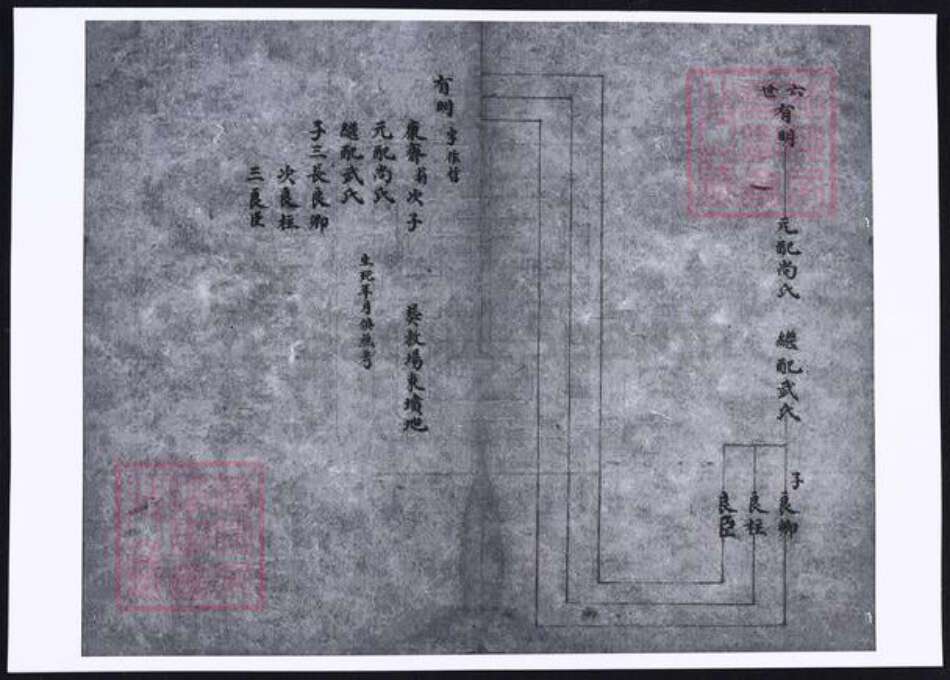 六世
有明
元配尚氏 繼配武氏
子 良卿
良柱
良臣
有明 字作哲
次子 葬教場東墳地
元配尚氏
生死年月俱無考
繼配武氏
子三長良卿
次良柱
三良臣